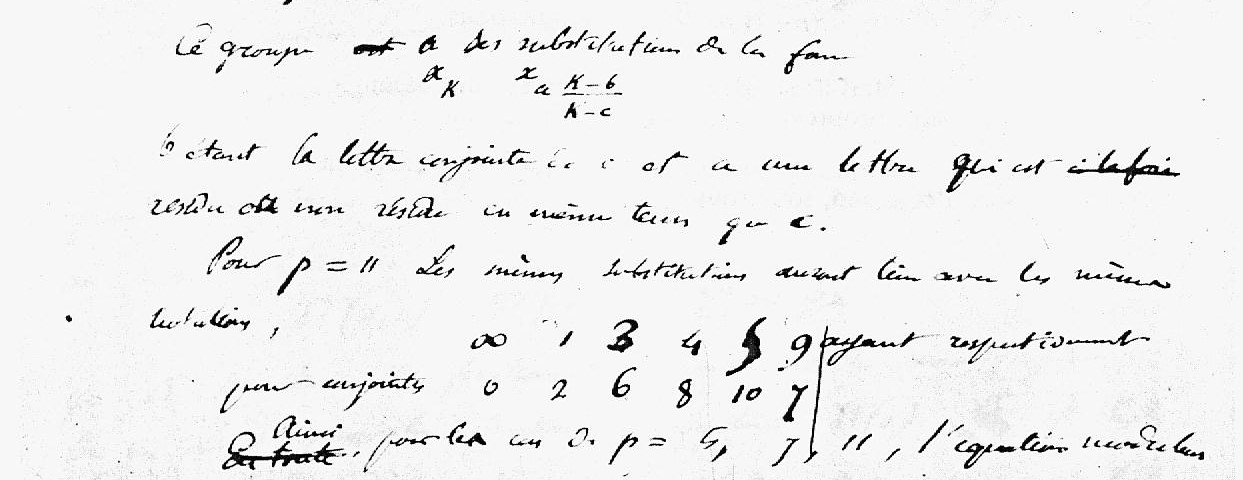 Ce groupe est a des substitutions de la forme
x_K x_{a (K-b)/(K-c)}
b étant la lettre conjointe de c et a une lettre qui est à la fois
résidu ou non résidu en même tems que c.
Pour p = 11 Les mêmes substitutions auront lieu avec les mêmes
notations,
∞ 1 3 4 5 9 ayant respectivement
pour conjointes 0 2 6 8 10 7
Ainsi
En toute, pour les cas de p = 5, 7, 11, l'équation modulaire